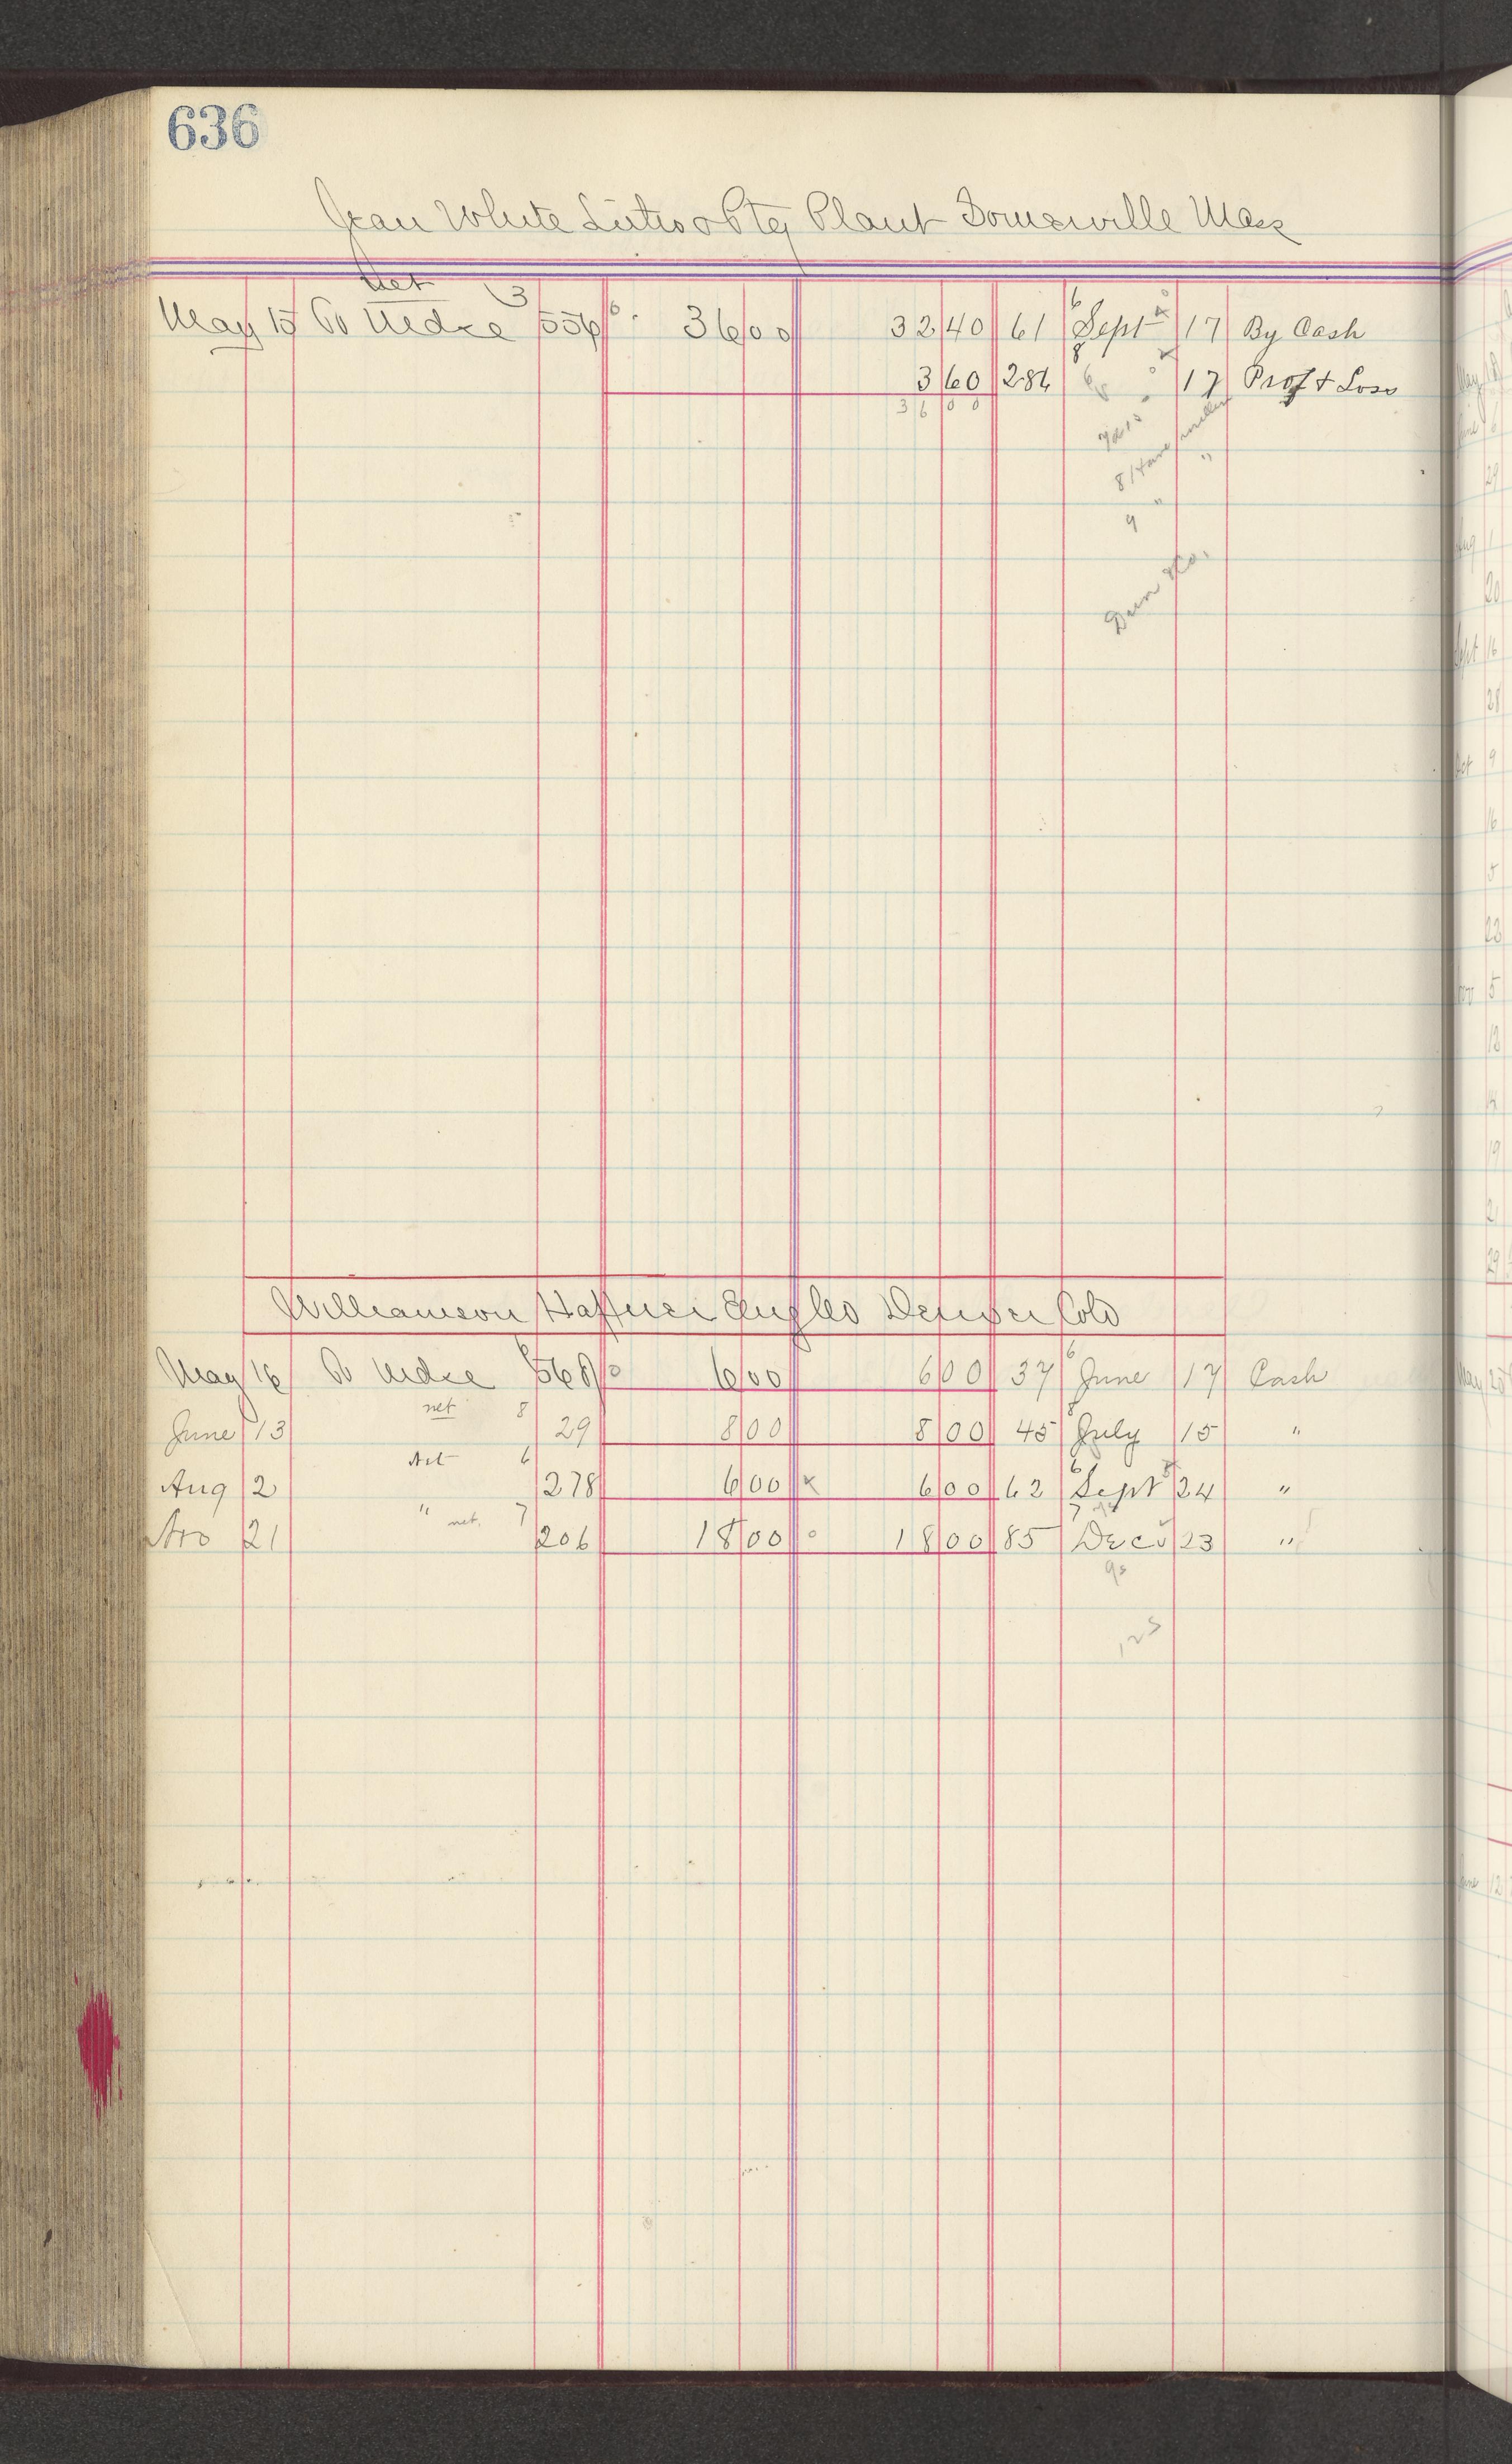 636
Jean White Litho & Ptg Plant Somerville Mass
net 3
May 15 To Mdse 556 36 00 32 40 61 6 Sept 17 By Cash
3 60 284 8 17 Prof & Loss
36 00
8
9 "
Dun & Co.
Williamson Haffner Eng Co Denver Colo
May 16 To Mdse 560 6 00 6 00 37 6 June 17 Cash
June 13 net 8 29 8 00 8 00 45 8 July 15 "
Aug 2 net 6 278 6 00 6 00 62 6 Sept 24 "
Nov 21 " net 7 206 18 00 18 00 85 7 Dec 23 "
125